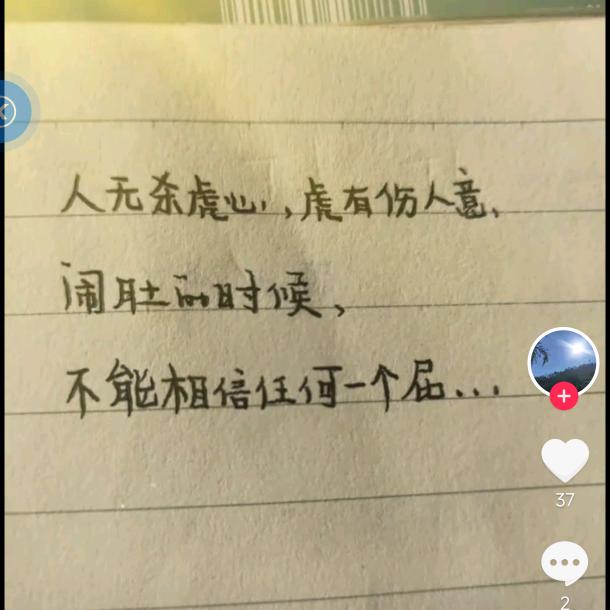 人无杀虎心，虎有伤人意，
闹肚的时候，
不能相信任何一个屁...
37
2